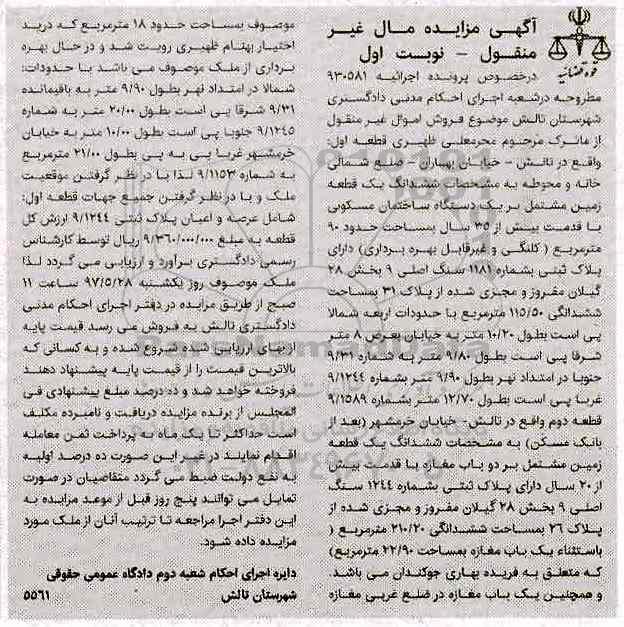 آگهی مزایده مال غیر
منقول - نوبت اول
قوه قضائیه
درخصوص پرونده اجرائیه ۹۳۰۵۸۱
مطروحه درشعبه اجرای احکام مدنی دادگستری
شهرستان تالش موضوع فروش اموال غیر منقول
از ماترک مرحوم محرمعلی ظهیری قطعه اول:
واقع در تالش - خیابان بهیاران - ضلع شمالی
خانه و محوطه به مشخصات ششدانگ یک قطعه
زمین مشتمل بر یک دستگاه ساختمان مسکونی
با قدمت بیش از ۳۵ سال بمساحت حدود ۹۰
مترمربع ( کلنگی و غیرقابل بهره برداری) دارای
پلاک ثبتی بشماره ۱۱۸۱ سنگ اصلی ۹ بخش ۲۸
گیلان مفروز و مجزی شده از پلاک ۳۱ بمساحت
ششدانگی ۱۱۵/۵۰ مترمربع با حدودات اربعه شمالا
پی است بطول ۱۰/۲۰ متر به خیابان بعرض ۸ متر
شرقا پی است بطول ۹/۸۰ متر به شماره ۹/۳۱
جنوبا در امتداد نهر بطول ۹/۹۰ متر بشماره ۹/۱۲۴۴
غربا پی است بطول ۱۲/۷۰ متر بشماره ۹/۱۵۸۹
قطعه دوم واقع در تالش- خیابان خرمشهر (بعد از
بانک مسکن) به مشخصات ششدانگ یک قطعه
زمین مشتمل بر دو باب مغازه با قدمت بیش
از ۲۰ سال دارای پلاک ثبتی بشماره ۱۲۴۴ سنگ
اصلی ۹ بخش ۲۸ گیلان مفروز و مجزی شده از
پلاک ۲۶ بمساحت ششدانگی ۲۱۰/۲۰ مترمربع (
باستثناء یک باب مغازه بمساحت ۲۲/۹۰ مترمربع)
که متعلق به فریده بهاری جوکندان می باشد.
و همچنین یک باب مغازه در ضلع غربی مغازه
موصوف بمساحت حدود ۱۸ مترمربع که درید
اختیار بهنام ظهیری رویت شد و در حال بهره
برداری از ملک موصوف می باشد با حدودات:
شمالا در امتداد نهر بطول ۹/۹۰ متر به باقیمانده
۹/۳۱ شرقا پی است بطول ۲۰/۰۰ متر به شماره
۹/۱۲۴۵ جنوبا پی است بطول ۱۰/۰۰ متر به خیابان
خرمشهر غربا پی به پی بطول ۲۱/۰۰ مترمربع
به شماره ۹/۱۱۵۳ لذا با در نظر گرفتن موقعیت
ملک و با در نظر گرفتن جمیع جهات قطعه اول:
شامل عرصه و اعیان پلاک ثبتی ۹/۱۲۴۴ ارزش کل
قطعه به مبلغ ۹/۳۶۰/۰۰۰/۰۰۰ ریال توسط کارشناس
رسمی دادگستری برآورد و ارزیابی می گردد لذا
ملک موصوف روز یکشنبه ۹۷/۵/۲۸ ساعت ۱۱
صبح از طریق مزایده در دفتر اجرای احکام مدنی
دادگستری تالش به فروش می رسد قیمت پایه
ازبهای ارزیابی شده شروع شده و به کسانی که
بالاترین قیمت را از قیمت پایه پیشنهاد دهند
فروخته خواهد شد و ده درصد مبلغ پیشنهادی فی
المجلس از برنده مزایده دریافت و نامبرده مکلف
است حداکثر تا یک ماه به پرداخت ثمن معامله
اقدام نمایند در غیر این صورت ده درصد اولیه
به نفع دولت ضبط می گردد متقاضیان در صورت
تمایل می توانند پنج روز قبل از موعد مزایده به
این دفتر اجرا مراجعه تا ترتیب آنان از ملک مورد
مزایده داده شود.
دایره اجرای احکام شعبه دوم دادگاه عمومی حقوقی
شهرستان تالش
۵۵۶۱